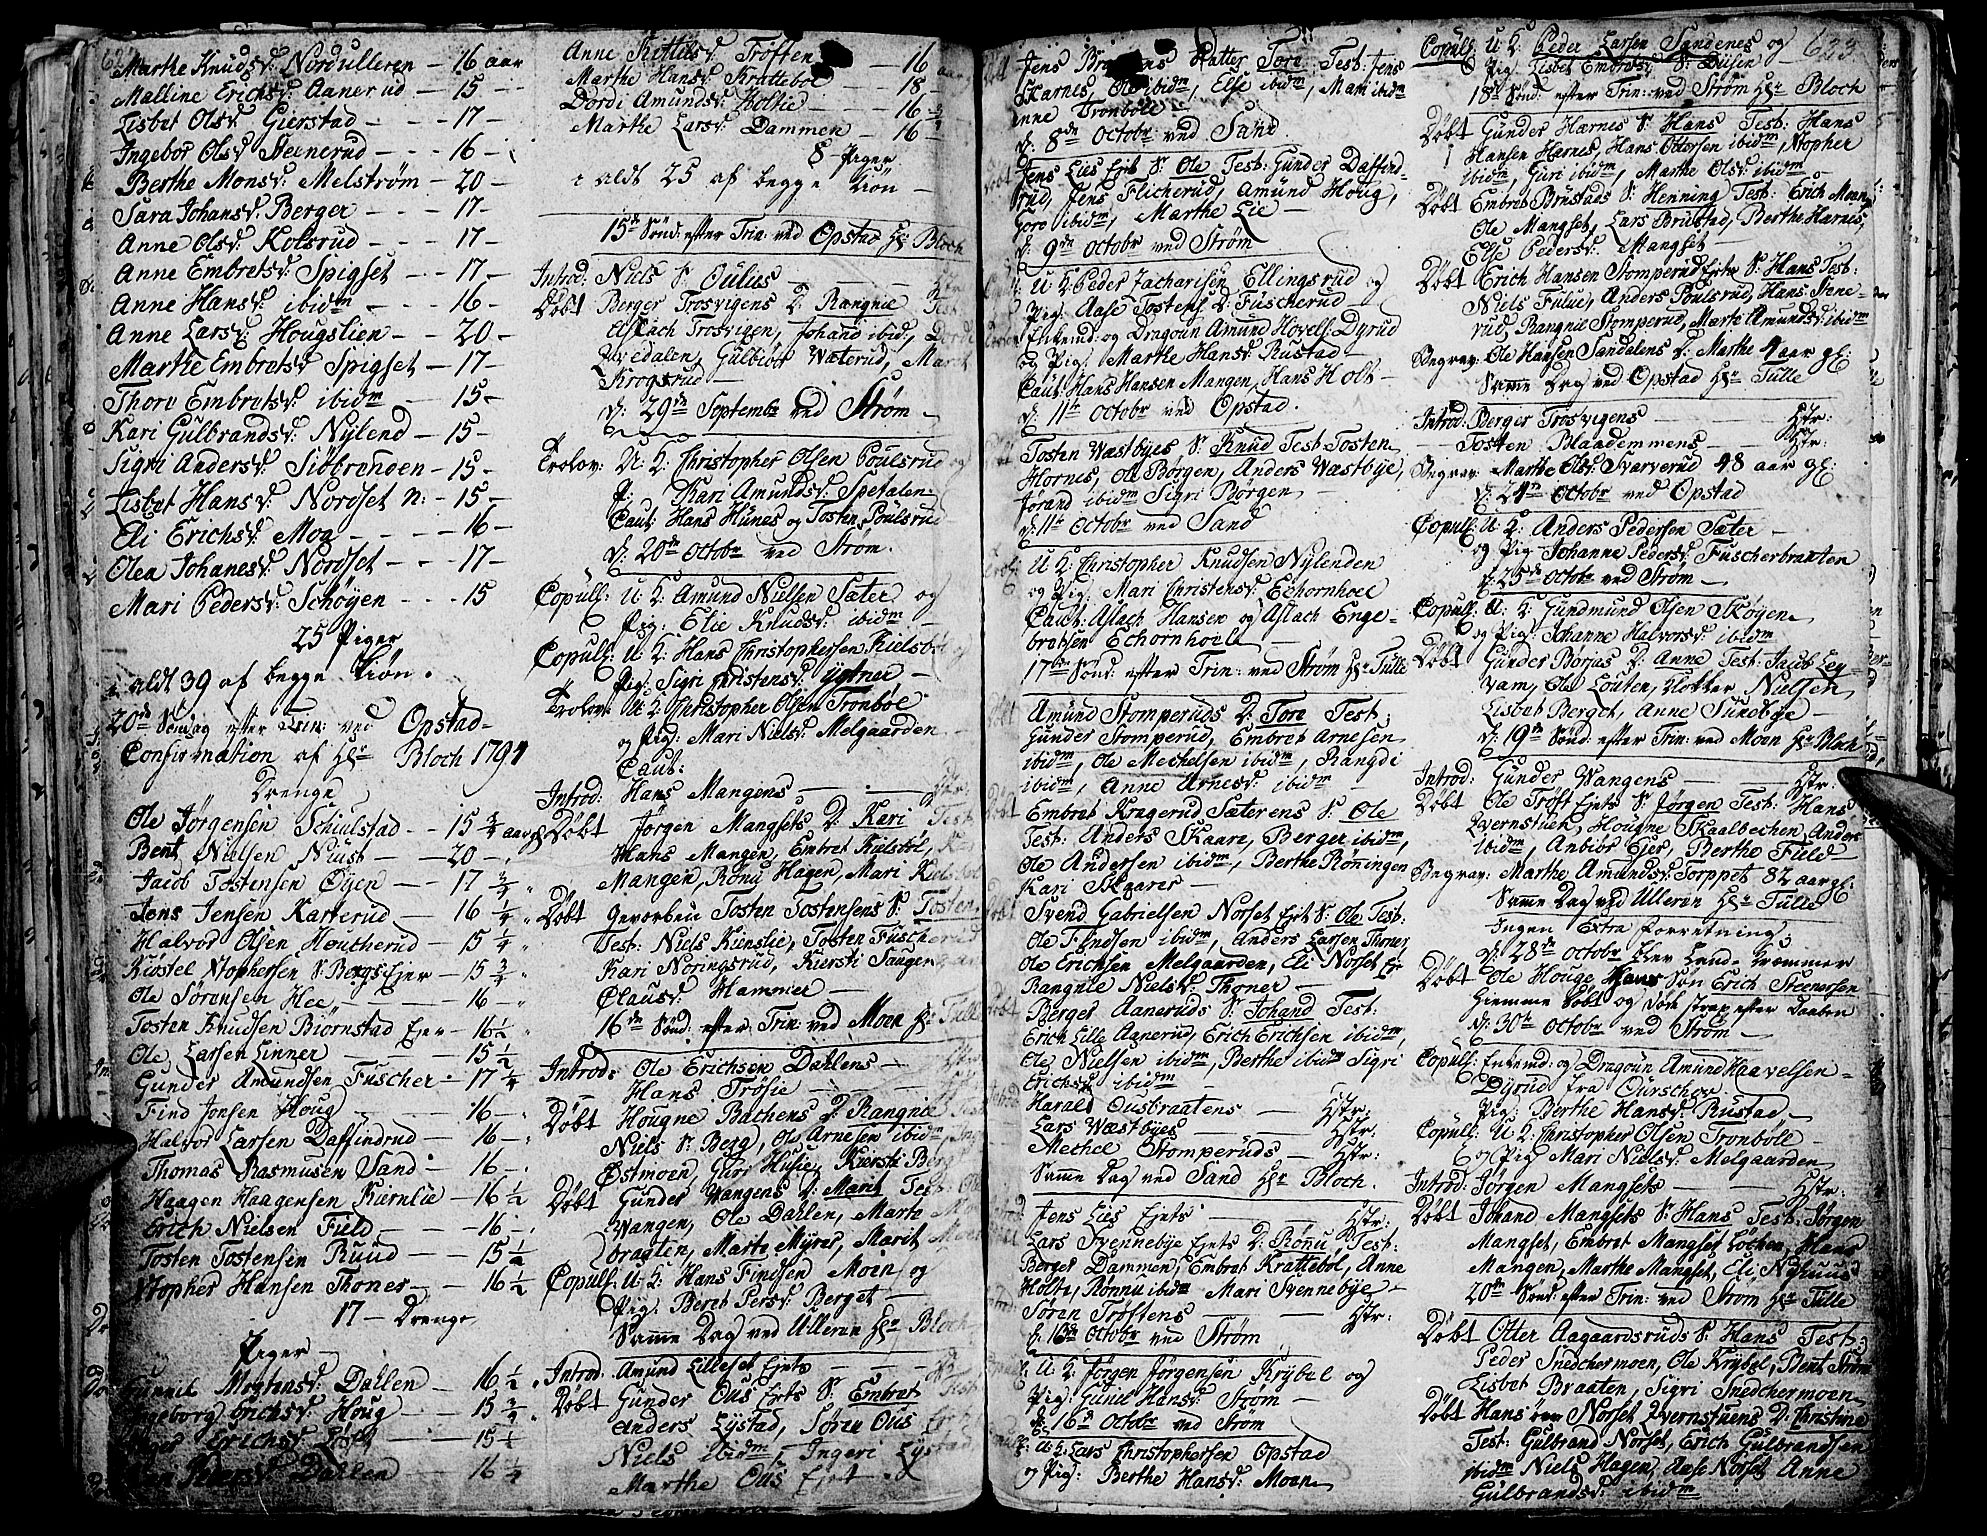 Marthe Knudsd: Nordulleren - 16 aar
Malline Erichsd: Aanerud - 15 -
Lisbet Olsd: Gierstad - - - 17 -
Ingebor Olsd: Steenerud - - 16 -
Berthe Monsd: Melstrøm - 20 -
Sara Johansd: Berger - - - 17 -
Anne Olsd: Kolsrud - - - 17 -
Anne Embretsd: Spigset - - 17 -
Anne Hansd: ibidm - - - 16 -
Anne Larsd: Hougslien - - 20 -
Marthe Embretsd: Spigset - 17 -
Thore Embretsd: ibidm - - 15 -
Kari Gulbrandsd: Nylend - 15 -
Sigri Andersd: Siøbrenden - 15 -
Lisbet Hansd: Nordset n: - 15 -
Eli Erichsd: Moa - - - - 16 -
Olea Johanesd: Nordset - - 17 -
Mari Pedersd: Schøyen - - - 15
25 Piger
i aldt 39 af begge Kiøn.
20de Søndag efter Trin: ved Opstad
Confirmation af Hr Bloch 1794
Drenge
Ole Jørgensen Schiulstad - - 15 3/4 aar gl
Bent Nielsen Niust - - 20 -
Jacob Tostensen Øyen - - 17 3/4
Jens Jensen Karterud - - 16 1/4
Halvor Olsen Houcherud - - 15 1/4
Kiøstel Stophersen S: Bergs Ejer - 15 3/4
Ole Sørensen Hee - - - 16 -
Tosten Knudsen Biørnstad Eje - 16 1/2
Ole Larsen Linner - - - 15 1/2
Gunder Amundsen Fuscher - 17 1/4
Find Jonsen Houg - - - 16 -
Halvor Larsen Daffindrud - - 16 -
Thomas Rasmusen Sand - - 16 -
Haagen Haagensen Kiernlie - 16 1/2
Erich Nielsen Fuld - - - 16 -
Tosten Tostensen Ruud - - 15 1/2
Stopher Hansen Thoner - - 16 1/2
17 - Drenge
Piger
Gunnil Mortensd: Dallen - 16 1/2
Ingeborg Erichsd: Houg - 15 3/4
Erichsd: - 15 1/2
Pedersd: Dahlen - 16 1/4
Anne Kittilsd: Trøften - 16 aar
Marthe Hansd: Kratteboel - 18 -
Dordi Amundsd: Holtie - 16 3/4
Marthe Larsd: Dammen - 16 -
8 Piger
i aldt 25 af begge Kiøn -
15de Sønd: efter Trin: ved Opstad Hr Bloch
Introd: Niels S: Oulies - - - Hstr
Døbt Berger Trosvigens D: Rangnie Test
Aslach Trosvigen, Johand ibid:, Dordi
Qvedalen, Gulbiør Wæterud, Marit
Krogsrud -
d: 29de Septembr ved Strøm -
Trolov: U: K: Christopher Olsen Poulsrud og
P: Kari Amundsd: Spetalen
Caut: Hans Hunes og Tosten Poulsrud
d: 20de Octobr ved Strøm.
Copull: U: K: Amund Nielsen Sæter og
Pig: Elie Knudsd: ibidm -
Copull: U: K: Hans Christophersen Kielsbøl
Pig: Sigri Christensd: ygtner -
Trolov: U: K: Christopher Olsen Tronbøle
og Pig: Mari Nielsd: Melgaarden
Caut:
Introd: Hans Mangens - - - Hstr:
Døbt Jørgen Mangsets D: Kari Test
Hans Mangen, Embret Kielsbøl,
Mangen, Rønu Hagen, Mari Kielsbøl
Døbt Gevorben Tosten Tostensens S: Tosten
Test: Niels Kienslie, Tosten Fuscherud
Kari Noringsrud, Kiersti Saugen
Clausd: Hammer -
16de Sønd: efter Trin: ved Moen Hr Tulle
Introd: Ole Erichsen Dahlens -
Hans Trøsie -
Døbt Hougne Bachens D: Rangnie Test
Niels S: Berg, Ole Arnesen ibidm
Østmoen, Guro Husie, Kiersti Berg
Døbt Gunder Wangens D: Marit Test:
Wangen, Ole Dahlen, Marte
Bragten, Marte Myrer, Marit Moen
Copull: U: K: Hans Findsen Moen og
Pig: Beret Persd: Berget -
Samme Dag ved Ulleren Hr Bloch
Introd: Amund Lilleset Ejets - - -
Døbt Gunder Ous Ejets S: Embret Test
Anders Lystad, Søren Ous
Niels ibidm, Ingeri Lystad,
Marthe Ous Ejet.
Jens Datter Tore Test: Jens
Skarnes, Ole ibidm, Else ibidm, Mari ibidm
Anne Tronbøle
d: 8de Octobr ved Sand
Døbt Jens Lies Ejet S: Ole Test: Gunder Daffind-
rud, Jens Flicherud, Amund Houg,
Goro ibidm, Marthe Lie -
d: 9de Octobr ved Strøm
U: K: Peder Zachariesen Ellingsrud og
Pig: Aase Tostensd: Fuscherud -
Enkemd: og Dragoun Amund Hovels: Dyrud
og Pig: Marthe Hansd: Rustad -
Caut: Hans Hansen Mangen, Hans Holt -
d: 11te Octobr ved Opstad.
Tosten Wæstbyes S: Knud Test: Tosten
Hornes, Ole Børgen, Anders Wæstbye,
Jørand ibidm Sigri Børgen -
d: 11te Octobr ved Sand
U: K: Christopher Knudsen Nylenden
og Pig: Mari Christensd: Echornhoel
Caut: Aslach Hansen og Aslach Enge-
bretsen Echornhoel -
17de Sønd: efter Trin: ved Strøm Hr Tulle
Amund Stomperuds D: Tore Test:
Gunder Stomperud, Embret Arnesen
ibidm, Ole Mechelsen ibidm, Rangdi
ibidm, Anne Arnesd: ibidm -
Embret Kragerud Sæterens S: Ole
Test: Anders Skaare, Berger ibidm,
Ole Andersen ibidm, Berthe Roningen
Kari Skaares -
Svend Gabrielsen Norset Ejet S: Ole Test:
Ole Findsen ibidm, Anders Larsen Thoner,
Ole Erichsen Melgaarden, Eli Norset Ejet
Rangnie Nielsd: Thoner -
Berger Aaneruds S: Johand Test:
Erich Lille Aanerud, Erich Erichsen ibidm,
Ole Nielsen ibidm, Berthe ibidm Sigri
Erichsd: ibidm -
Harald Ousbraatens - Hstr:
Lars Wæstbyes - - Hstr:
Mechel Stomperuds - Hstr:
Samme Dag ved Sand Hr Bloch.
Jens Lies Ejets - - Hstr:
Lars Svennebye Ejets D: Rønu, Test:
Berger Dammen, Embret Krattebøl, Anne
Holte, Rønnu ibidm Mari Svennebye -
Søren Trøftens - - Hstr:
d: 16de Octobr ved Strøm
U: K: Jørgen Jørgensen Krybel og
Pig: Gunil Hansd: Strøm -
d: 16de Octobr ved Strøm
U: K: Lars Christophersen Opstad
og Pig: Berthe Hansd: Moen
633
Copull: U: K: Peder Larsen Sandenes og
Pig: Lisbet Embretsd: S: Dufsen -
18de Sønd: efter Trin: ved Strøm Hr Bloch
Døbt Gunder Hærnes S: Hans Test: Hans
Hansen Hærnes, Hans Ottersen ibidm, Stopher
ibidm, Guri ibidm, Marthe Olsd: ibidm
Døbt Embret Brustads S: Henning Test: Erich Moen
Ole Mangset, Lars Brustad, Berthe Harnes,
Else Pedersd: Mangset -
Døbt Erich Hansen Stomperud Ejets S: Hans Test:
Niels Fulue, Anders Poulsrud, Hans Stene-
rud, Rangnie Stomperud, Marte Amundsd: ibidm
Begrav: Ole Hansen Sandalens D: Marthe 4 aar gl:
Samme Dag ved Opstad Hr Tulle
Introd: Berger Trosvigens - - Hstr:
- Tosten Blaademmens - Hstr:
Begrav: Marthe Olsd: Svarverud 48 aar gl:
d: 24de Octobr ved Opstad
Copull: U: K: Anders Pedersen Sæter -
og Pig: Johanne Pedersd: Fuscherbraaten
d: 25de Octobr ved Strøm -
Copull: U: K: Gundmund Olsen Skøyen
og Pig: Johanne Halvorsd: ibidm
Døbt Gunder Børjus D: Anne Test: Jacob Ley-
vam, Ole Louten, Kolter Nielsen
Lisbet Berget, Anne Sundbye -
d: 19de Sønd: efter Trin: ved Moen Hr Bloch
Introd: Gunder Wangens - - Hstr:
Døbt Ole Trøft Ejets S: Jørgen Test: Hans
Qvernstuen, Hougne Skaalbechen, Anders
ibidm, Anbiør Ejer, Berthe Fuld
Begrav: Marthe Amundsd: Torppet 82 aar gl:
Samme Dag ved Ulleren Hr Tulle
Ingen Extra Forretning:
d: 28de Octobr blev
Døbt Ole Houge Hans Søn Erich Steenersen
Hiemme Døbt og Døde strax efter Daaben
d: 30te Octobr ved Strøm -
Copull: Enkemd: og Dragoun Amund Haavelsen -
Dyrud fra Ourschou
Pig: Berthe Hansd: Rustad -
Copull: U: K: Christopher Olsen Tronbøle -
og Pig: Mari Nielsd: Melgaarden
Introd: Jørgen Mangsets - - Hstr:
Døbt Johand Mangsets S: Hans Test: Jørgen
Mangset, Embret Mangset Løchen, Hans
Mangen, Marthe Mangset, Eli Nyhuus
20de Sønd: efter Trin: ved Strøm Hr Tulle
Døbt Otter Aagaardsruds S: Hans Test:
Peder Snedchermoen, Ole Krybel, Bent Strøm
Lisbet Braaten, Sigri Snedchermoen
Døbt Hans Norset Qvernstuens D: Christina
Test: Gulbrand Norset, Erich Gulbrandsen
ibidm Niels Hagen, Aase Norset Anne
Gulbrandsd: ibidm